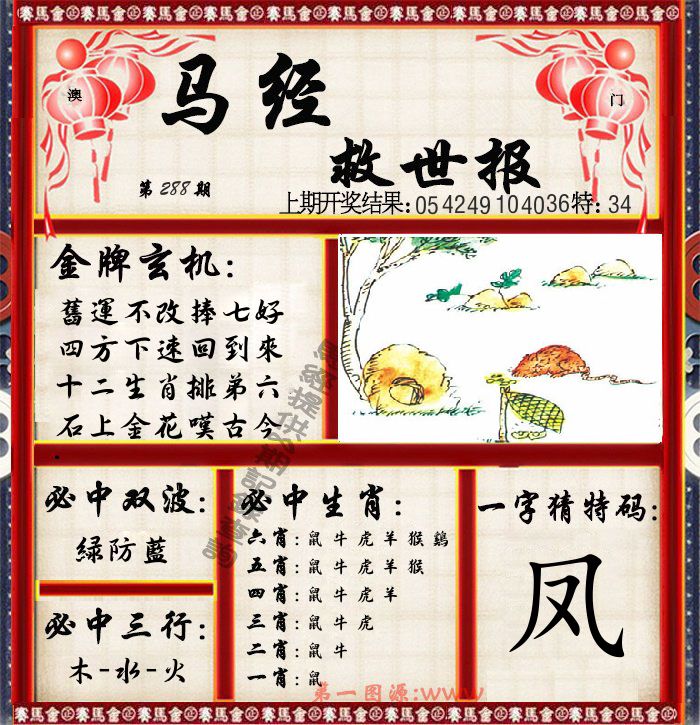 賽馬會
澳
门
马经
救世报
第288期
上期开奖结果:05 42 49 10 40 36特:34
金牌玄机:
舊運不改捧七好
四方下速回到來
十二生肖排第六
石上金花嘆古今
必中双波:
緑防藍
必中三行:
木-水-火
必中生肖:
六肖:鼠牛虎羊猴鷄
五肖:鼠牛虎羊猴
四肖:鼠牛虎羊
三肖:鼠牛虎
二肖:鼠牛
一肖:鼠
一字猜特码:
凤
第一图源:www